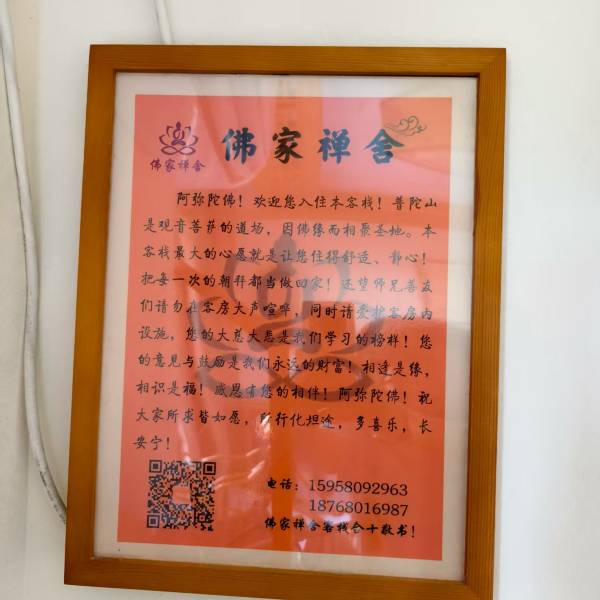 佛家禅舍
佛家禅舍
阿弥陀佛！欢迎您入住本客栈！普陀山
是观音菩萨的道场，因佛缘而相聚圣地。本
客栈最大的心愿就是让您住得舒适、静心！
把每一次的朝拜都当做回家！还望师兄善友
们请勿在客房大声喧哗，同时请爱护客房内
设施，您的大慈大悲是我们学习的榜样！您
的意见与鼓励是我们永远的财富！相逢是缘，
相识是福！感恩有您的相伴！阿弥陀佛！祝
大家所求皆如愿，所行化坦途，多喜乐，长
安宁！
电话：15958092963
18768016987
佛家禅舍客栈合十敬书！